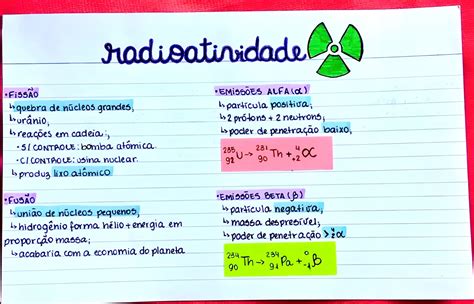 radioatividade
•FISSÃO
↳quebra de núcleos grandes,
↳urânio,
↳reações em cadeia:,
•S/ CONTROLE: bomba atômica.
•C/ CONTROLE: usina nuclear.
↳produz lixo atômico
•FUSÃO
↳união de núcleos pequenos,
↳hidrogênio forma hélio+energia em
proporção massa;
↳acabaria com a economia do planeta
•EMISSÕES ALFA(α)
↳partícula positiva,
↳2 prótons + 2 neutrons,
↳poder de penetração baixo,
²³⁵₉₂U → ²³¹₉₀Th + ⁴₊₂α
•EMISSÕES BETA (β)
↳partícula negativa,
↳massa despresível;
↳poder de penetração > ⁴₂α
²³⁴₉₀Th → ²³⁴₉₁Pa + ⁰₋₁β